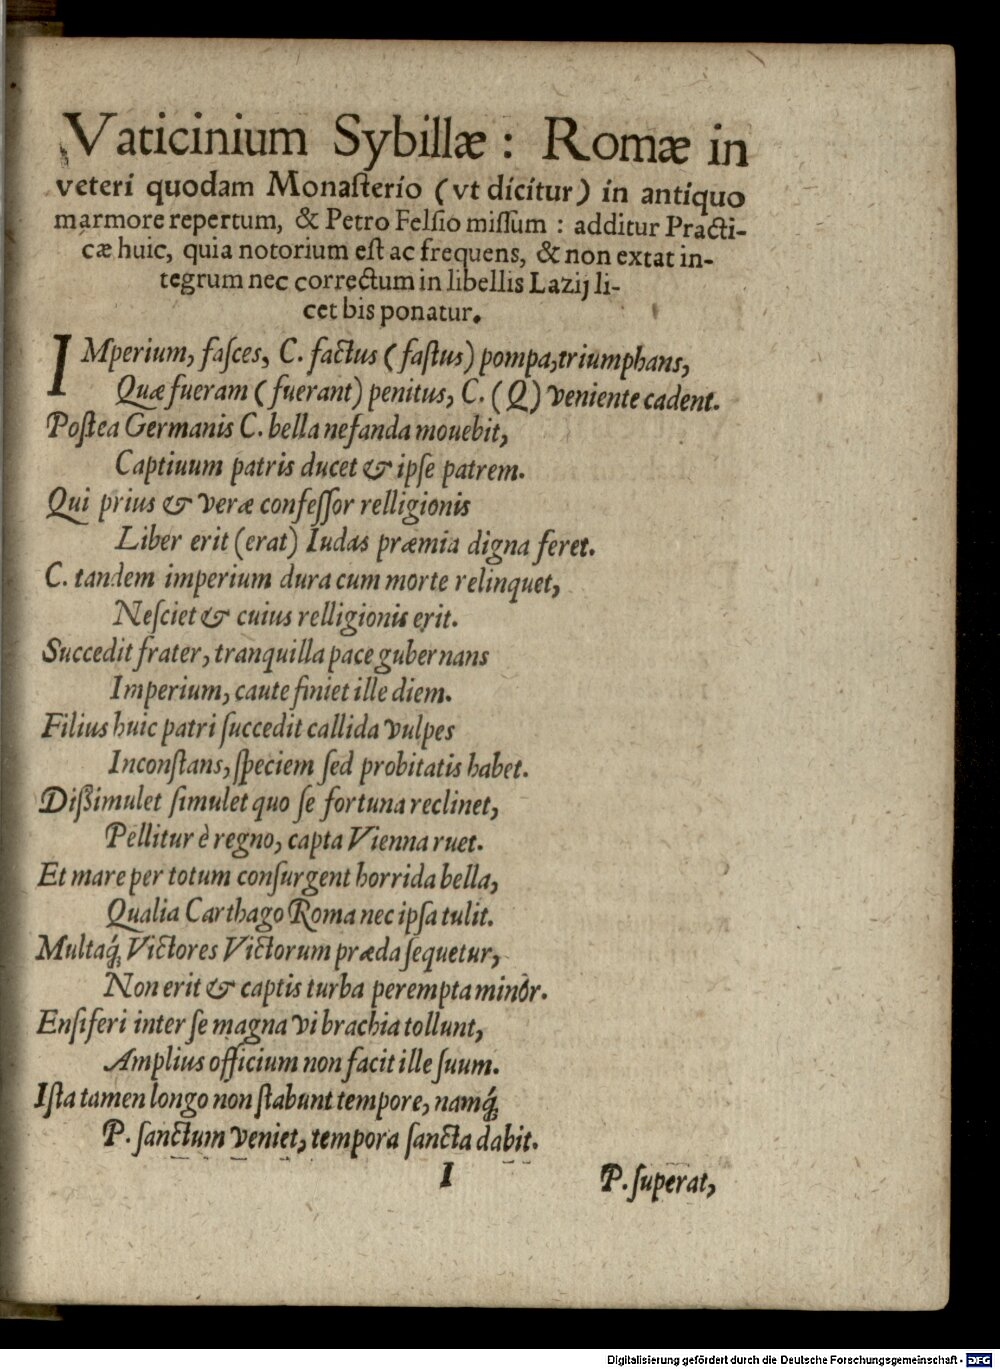 Vaticinium Sybillæ: Romæ in
veteri quodam Monaſterio (vt dicitur) in antiquo
marmore repertum, & Petro Felſio miſſum: additur Practi-
cæ huic, quia notorium eſt ac frequens, & non extat in-
tegrum nec correctum in libellis Lazij li-
cet bis ponatur.
IMperium, faſces, C. factus (faſtus) pompa, triumphans,
Quæ fueram (fuerant) penitus, C. (Q) veniente cadent.
Poſtea Germanis C. bella nefanda mouebit,
Captiuum patris ducet & ipſe patrem.
Qui prius & veræ confeſſor relligionis
Liber erit (erat) Iudas præmia digna feret.
C. tandem imperium dura cum morte relinquet,
Neſciet & cuius relligionis erit.
Succedit frater, tranquilla pace gubernans
Imperium, caute finiet ille diem.
Filius huic patri ſuccedit callida vulpes
Inconſtans, ſpeciem ſed probitatis habet.
Dißimulet ſimulet quo ſe fortuna reclinet,
Pellitur è regno, capta Vienna ruet.
Et mare per totum conſurgent horrida bella,
Qualia Carthago Roma nec ipſa tulit.
Multaq́; Victores Victorum præda ſequetur,
Non erit & captis turba perempta minor.
Enſiferi inter ſe magna vi brachia tollunt,
Amplius officium non facit ille ſuum.
Iſta tamen longo non ſtabunt tempore, namq́;
P. ſanctum veniet, tempora ſancta dabit.
I P. ſuperat,
Digitalisierung gefördert durch die Deutsche Forschungsgemeinschaft - DFG